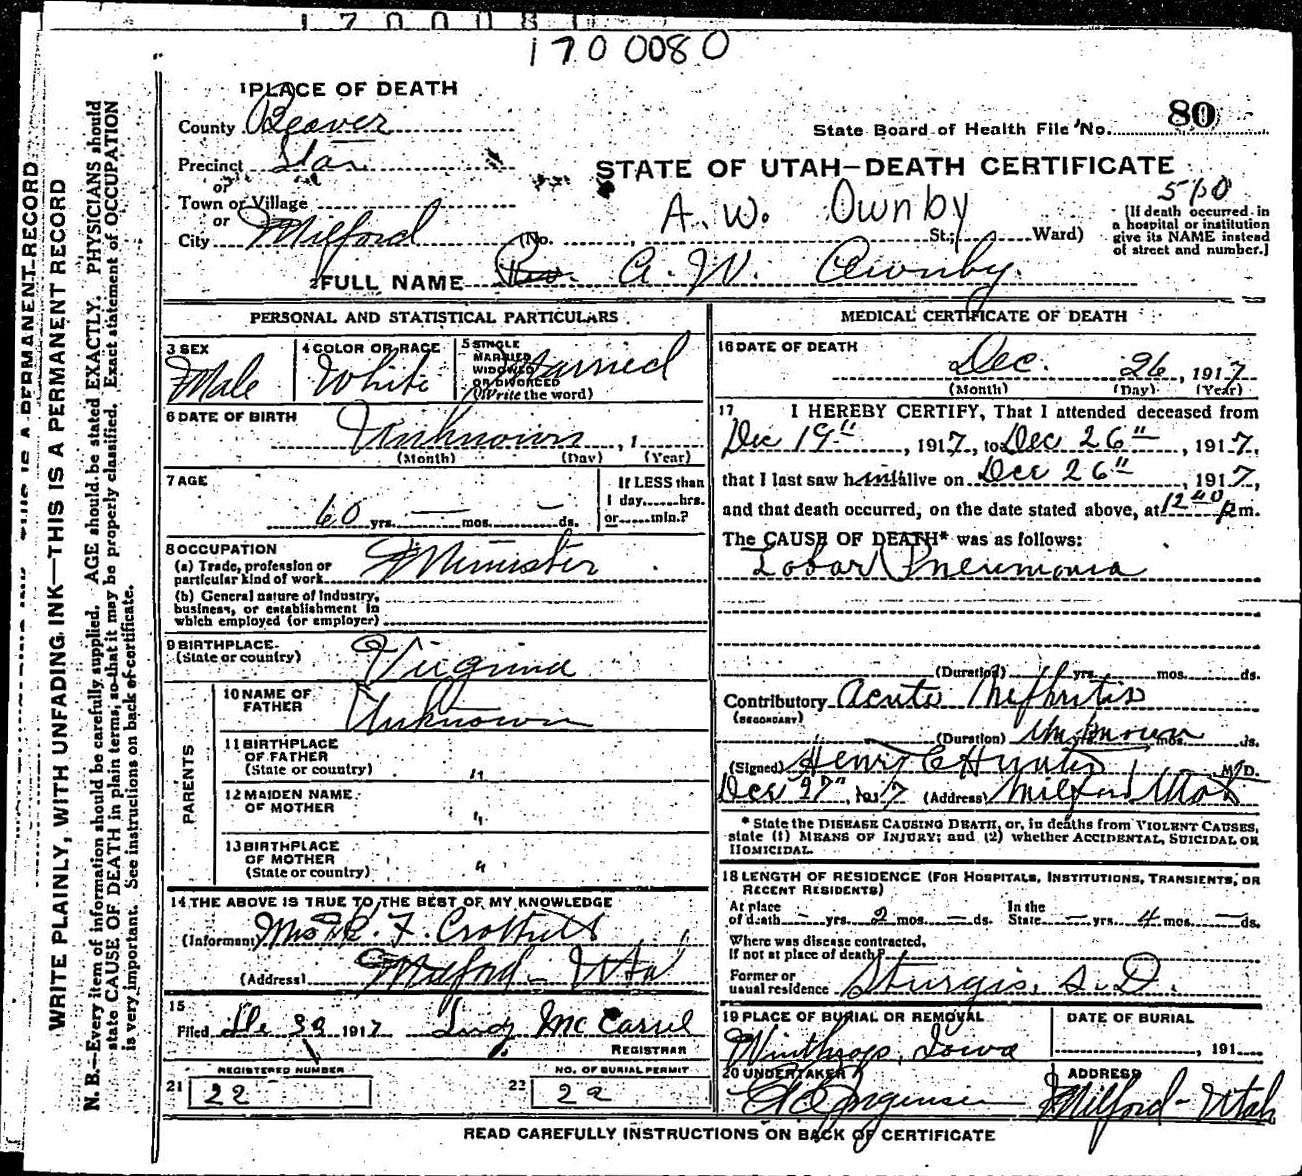 1700080
1 PLACE OF DEATH
80
County Beaver
State Board of Health File No.
Precinct Star
STATE OF UTAH—DEATH CERTIFICATE
or
Town or Village
510
A. W. Ownby
or
City Milford (No. St.; Ward)
[If death occurred in
a hospital or institution
give its NAME instead
of street and number.]
2 FULL NAME Rev. A. W. Ownby
PERSONAL AND STATISTICAL PARTICULARS
3 SEX
Male
4 COLOR OR RACE
White
5 SINGLE
MARRIED
WIDOWED
OR DIVORCED
(Write the word)
Married
6 DATE OF BIRTH
Unknown , 1
(Month) (Day) (Year)
7 AGE
60 yrs. — mos. — ds.
If LESS than
1 day......hrs.
or......min.?
8 OCCUPATION
(a) Trade, profession or
particular kind of work Minister
(b) General nature of Industry,
business, or establishment in
which employed (or employer)
9 BIRTHPLACE
(State or country) Virginia
PARENTS
10 NAME OF
FATHER Unknown
11 BIRTHPLACE
OF FATHER
(State or country) "
12 MAIDEN NAME
OF MOTHER "
13 BIRTHPLACE
OF MOTHER
(State or country) "
14 THE ABOVE IS TRUE TO THE BEST OF MY KNOWLEDGE
(Informant) F.
(Address) Milford - Utah
15
Filed 1917 McCarrel
REGISTRAR
REGISTERED NUMBER
21 22
NO. OF BURIAL PERMIT
22 22
MEDICAL CERTIFICATE OF DEATH
16 DATE OF DEATH
Dec. 26, 1917
(Month) (Day) (Year)
17 I HEREBY CERTIFY, That I attended deceased from
Dec 19", 1917, to Dec 26", 1917,
that I last saw him alive on Dec 26", 1917,
and that death occurred, on the date stated above, at 12 40 p m.
The CAUSE OF DEATH* was as follows:
Lobar Pneumonia
(Duration) yrs. mos. ds.
Contributory Acute Nephritis
(SECONDARY)
(Duration) unknown yrs. mos. ds.
(Signed) Henry C Hunter M. D.
Dec 27", 1917 (Address) Milford Utah
* State the DISEASE CAUSING DEATH, or, in deaths from VIOLENT CAUSES,
state (1) MEANS OF INJURY; and (2) whether ACCIDENTAL, SUICIDAL OR
HOMICIDAL.
18 LENGTH OF RESIDENCE (FOR HOSPITALS, INSTITUTIONS, TRANSIENTS, OR
RECENT RESIDENTS)
At place
of death — yrs. 2 mos. — ds.
In the
State — yrs. 4 mos. — ds.
Where was disease contracted,
If not at place of death?
Former or
usual residence Sturgis, S. D.
19 PLACE OF BURIAL OR REMOVAL
Winthrop, Iowa
DATE OF BURIAL
, 191
20 UNDERTAKER
Jorgensen
ADDRESS
Milford - Utah
READ CAREFULLY INSTRUCTIONS ON BACK OF CERTIFICATE
WRITE PLAINLY, WITH UNFADING INK—THIS IS A PERMANENT RECORD
N. B.—Every item of information should be carefully supplied. AGE should be stated EXACTLY. PHYSICIANS should
state CAUSE OF DEATH in plain terms, so that it may be properly classified. Exact statement of OCCUPATION
is very important. See instructions on back of certificate.